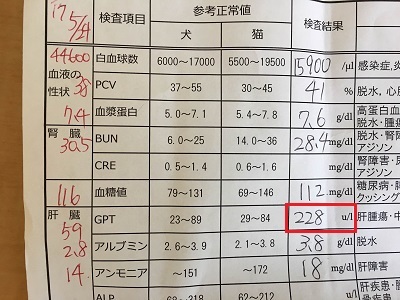 17 5/21 検査項目 参考正常値 検査結果
犬 猫
44600 白血球数 6000～17000 5500～19500 15900 /μl 感染症,炎
血液の性状 38 PCV 37～55 30～45 41 % 脱水,心
7.4 血漿蛋白 5.0～7.1 5.4～7.8 7.6 g/dl 高蛋白血 脱水・腫瘍
腎臓 30.5 BUN 6.0～25 14.0～36 28.4 mg/dl 脱水・腎障 アジソン
CRE 0.5～1.4 0.6～1.6 mg/dl 腎障害・尿 アジソン
116 血糖値 79～131 69～146 112 mg/dl 糖尿病・膵 クッシング
肝臓 59 GPT 23～89 29～84 228 u/l 肝腫瘍・中
2.8 アルブミン 2.6～3.9 2.1～3.8 3.8 g/dl 脱水
14. アンモニア ～151 ～172 18 mg/dl 肝障害
ALP 68～312 62～212 u/l 肝疾患・胆